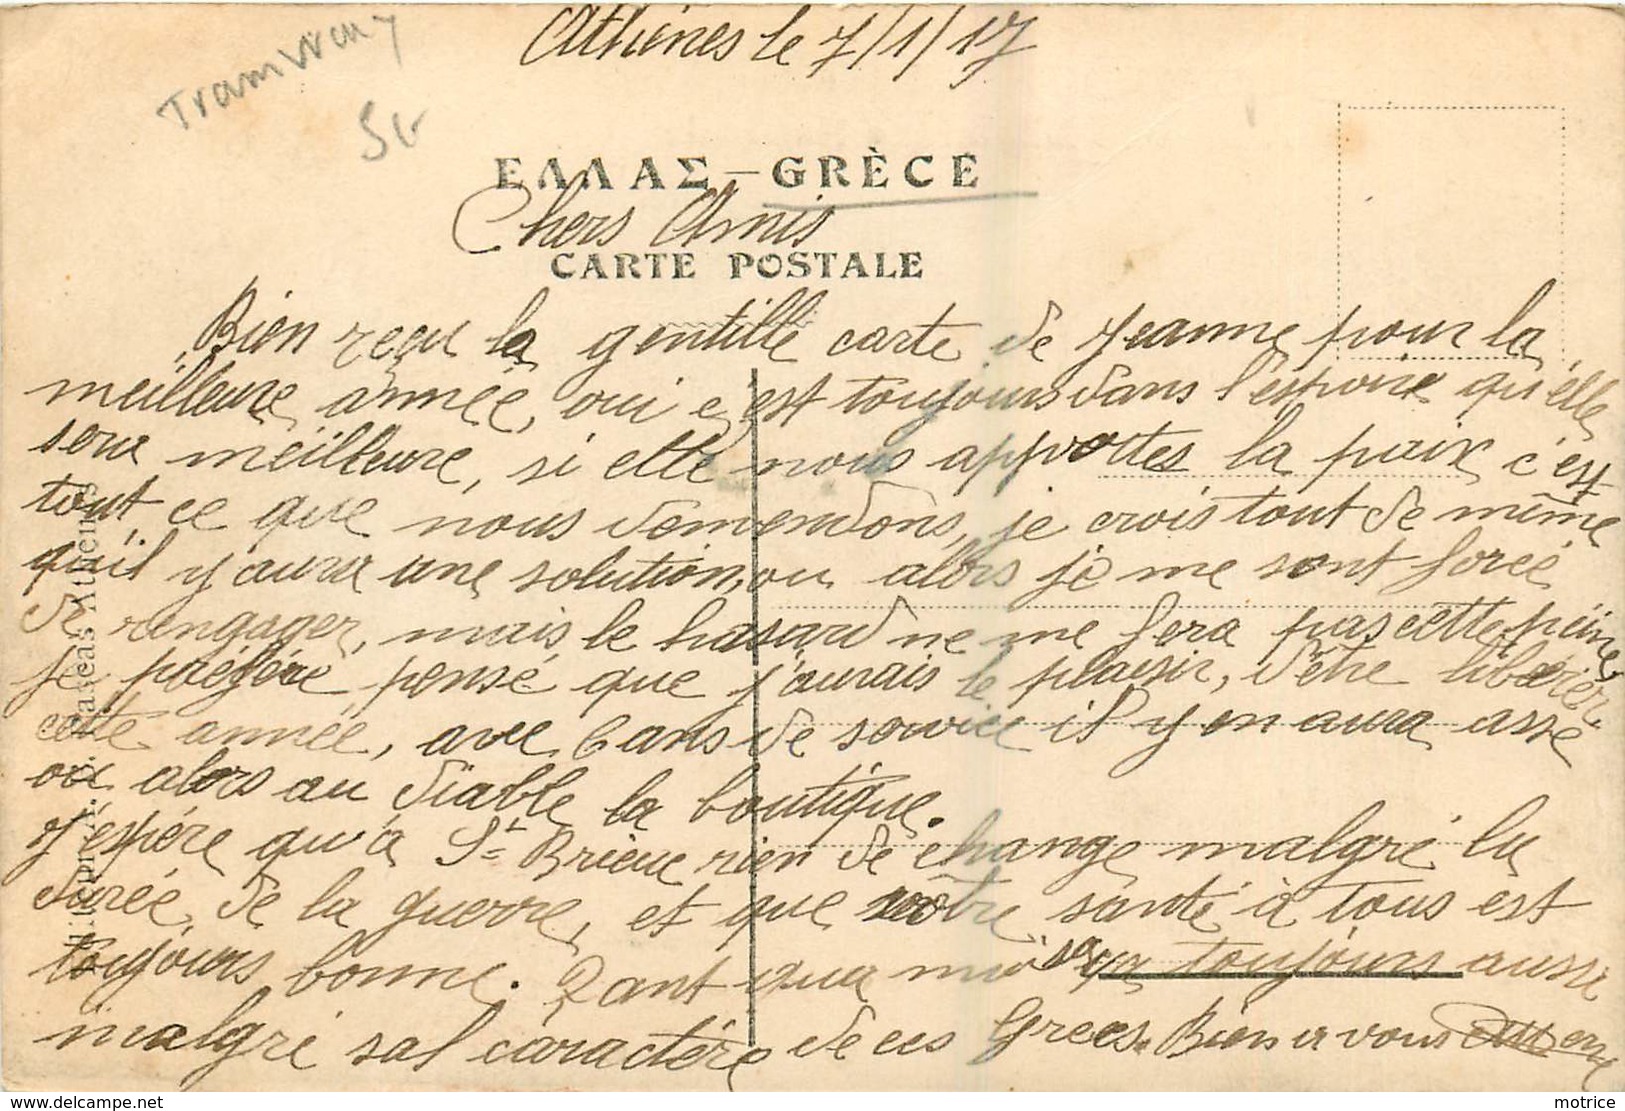 Athènes le 7/1/17
Tramway
ΕΛΛΑΣ – GRÈCE
Chers Amis
CARTE POSTALE
Bien reçu la gentille carte de Jeanne pour la
meilleure année, oui c'est toujours dans l'espoire qu'elle
sera meilleure, si elle nous apporttes la paix c'est
tout ce que nous demendons, je crois tout de même
qu'il y aura une solution, ou alors je me sont forcé
de rengager, mais le hasard ne me fera pas cette peine
je préfére pensé que j'aurais le plaisir, d'être libérer
cette année, avec 6 ans de service il y en aura assé
ou alors au diable la boutique.
J'espére qu'à St Brieuc rien de change malgré la
durée de la guerre, et que votre santé à tous est
toujours bonne. Quant qua moi sa va toujours aussi
malgré sal caractére de ces Grecs. Bien a vous
motrice